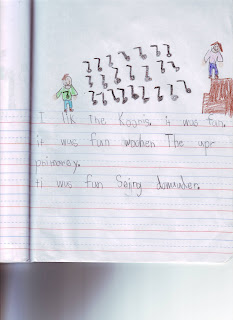 I lik The Kogris. it wus fun.
it wus fun wochen The upr
primaresy.
it wus fun Sejing damauder.